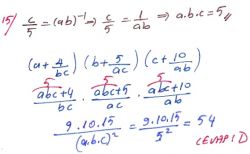 15/ c/5 = (ab)⁻¹ ⇒ c/5 = 1/ab ⇒ a.b.c = 5,,
(a + 4/bc) (b + 5/ac) (c + 10/ab)
(abc+4)/bc . (abc+5)/ac . (abc+10)/ab
9.10.15/(a.b.c)² = 9.10.15/5² = 54
(CEVAP: D)